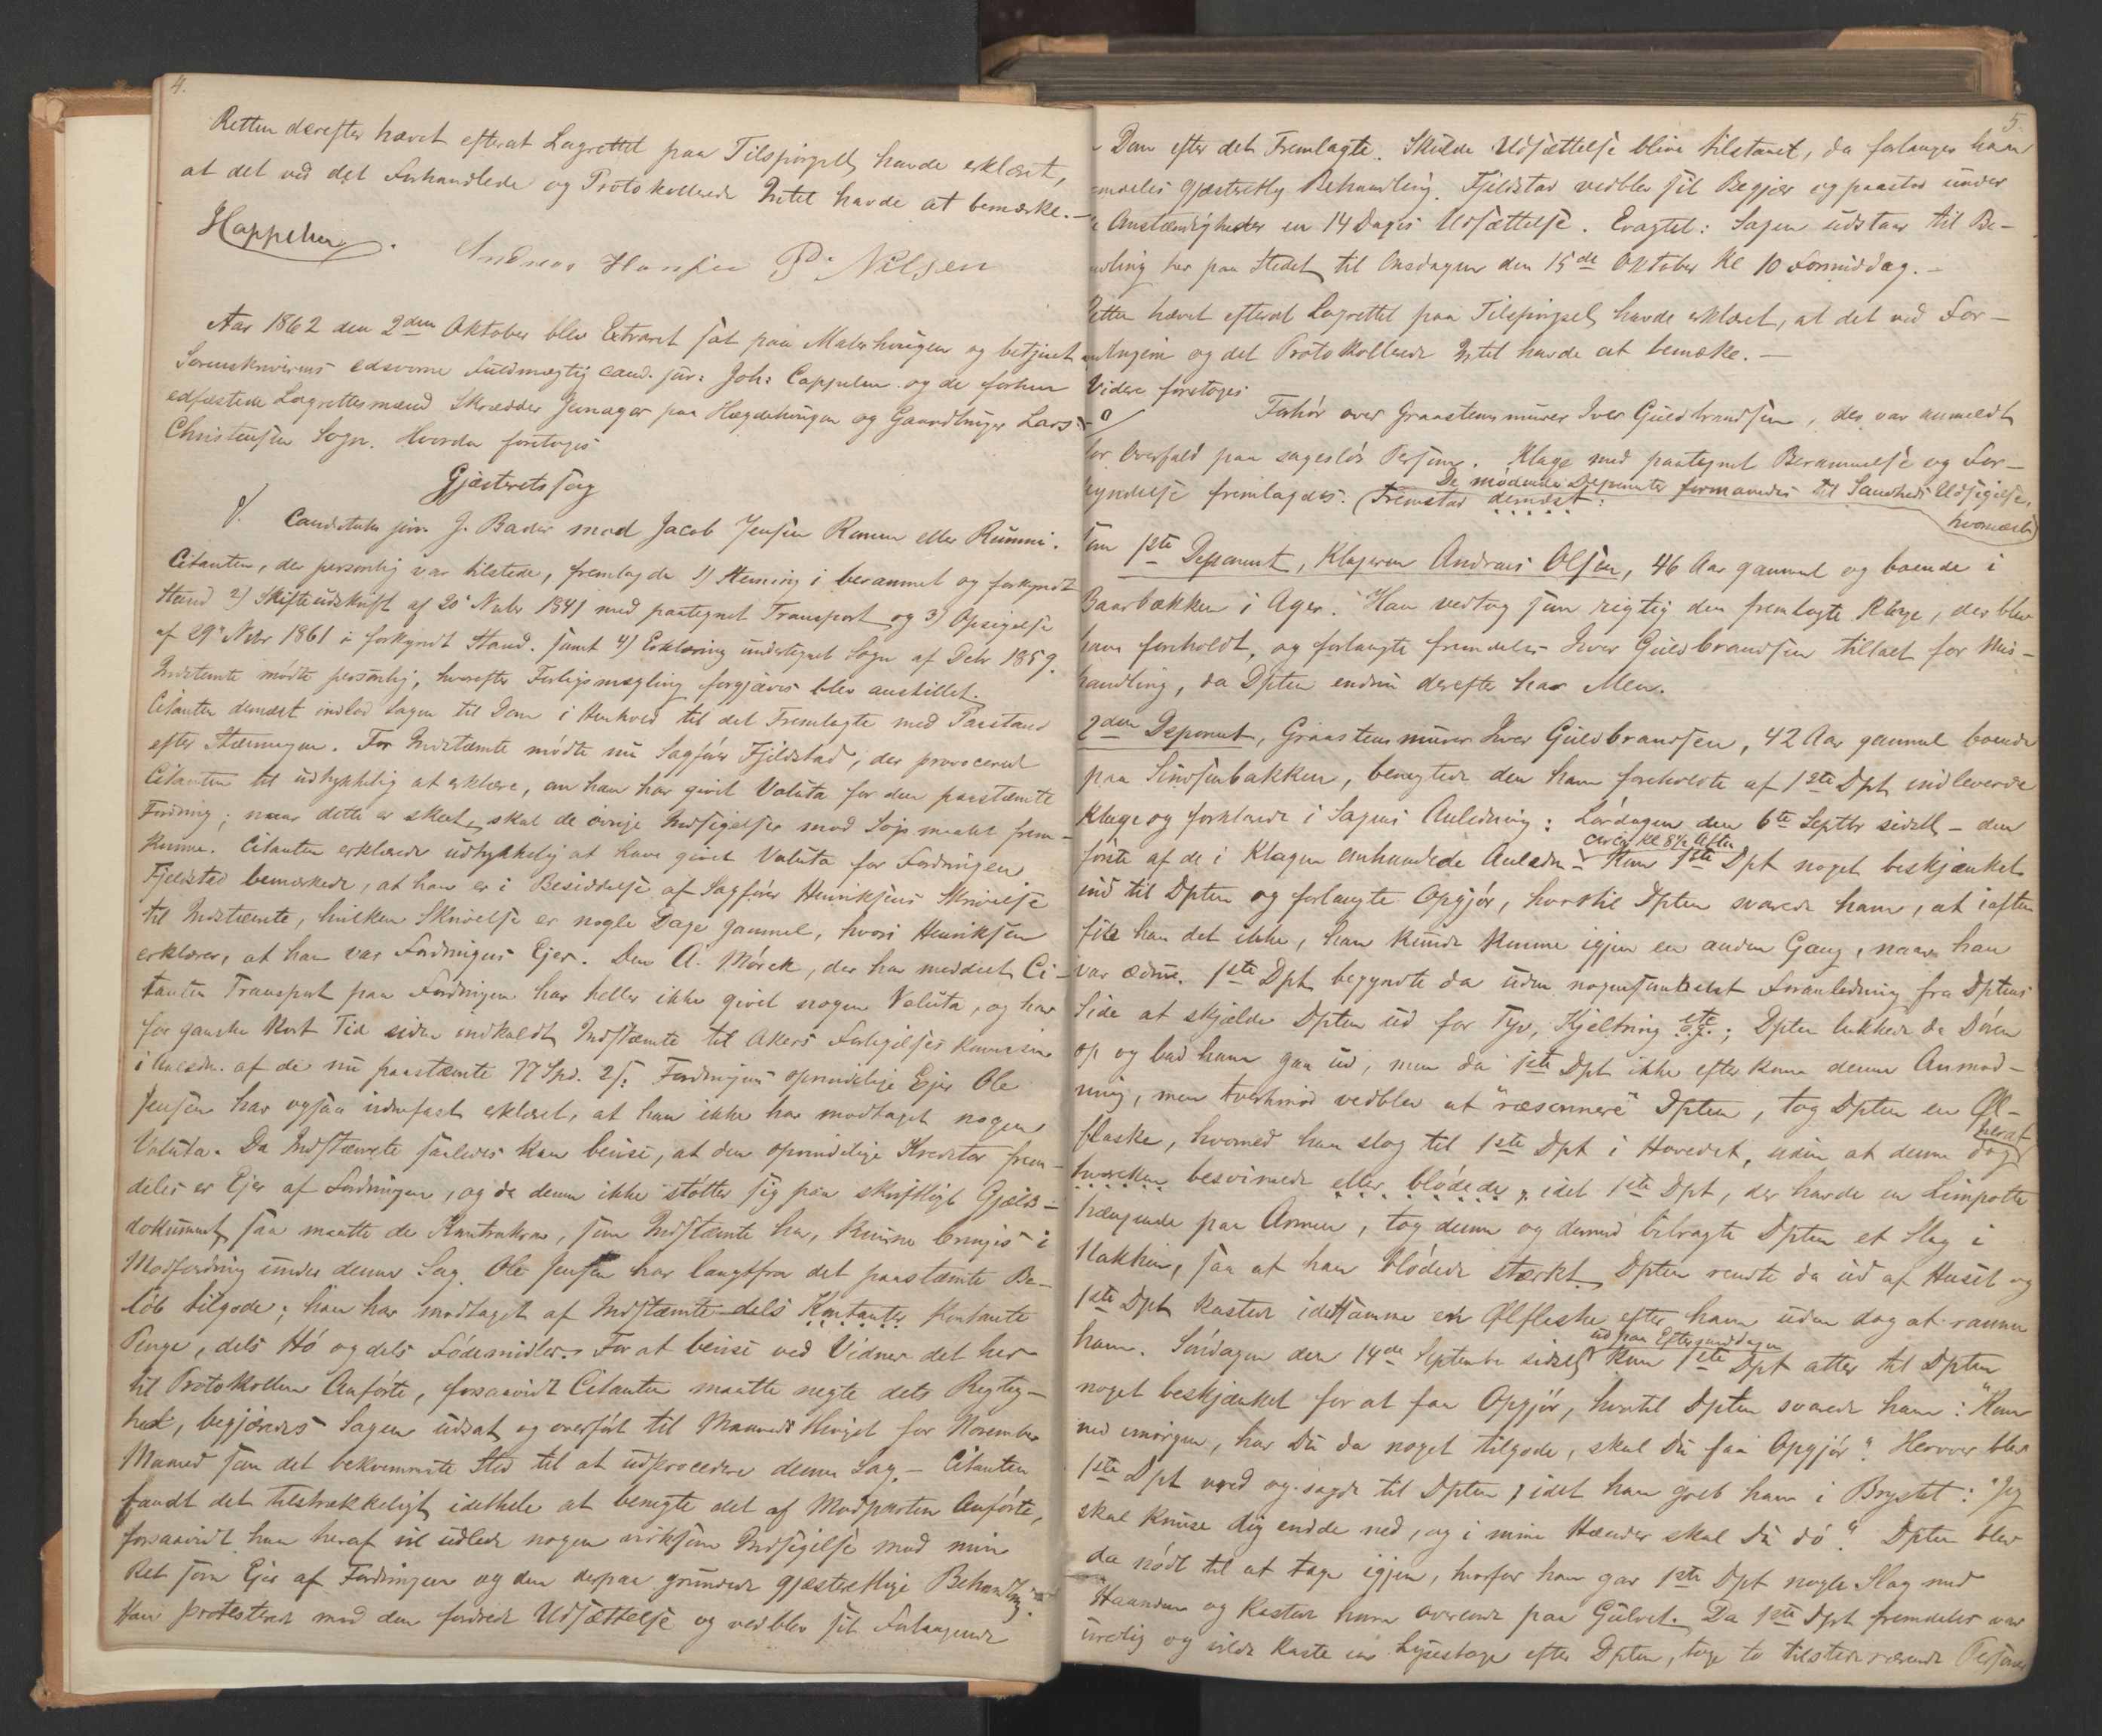 4.
Retten derefter hævet efterat Lagrettet paa Tilspørgsel havde erklæret,
at det ved det Forhandlede og Protokollerede Intet havde at bemærke.—
Cappelen. Andreas Hansen P. Nilsen
Aar 1862 den 2den Oktober blev Extraret sat paa Malerhaugen og betjent
Sorenskriverens edsvorne Fuldmægtig cand. jur: Joh: Cappelen og de forhen
edfæstede Lagrettesmænd Skrædder paa Hægdehaugen og Gaardbruger Lars
Christensen Sogn. Hvorda foretoges
Gjæsteretssag
Candidatus jur. J. Bader mod Jacob Jensen Ramm eller Rummi.
Citanten, der personlig var tilstede, fremlagde 1) Stevning i berammet og forkyndt
Stand 2) Skifteudskrift af 20' Novbr 1841 med paategnet Transport og 3) Opsigelse
af 29' Novbr 1861 i forkyndt Stand. samt 4) Erklæring undertegnet Sogn af Debr 1859.
Indstemte mødte personlig, hvorefter Forligsmægling forgjæves blev anstillet.
Citanten demæst indlod Sagen til Dom i Henhold til det Fremlagte med Paastand
efter Stevningen. For Indstæmte mødte nu Sagfører Fjeldstad, der provocerede
Citanten til udtrykkelig at erklære, om han har givet Valuta for den paastæmte
Fordring; naar dette er skeet, skal de øvrige Indsigelser mod Søgsmaalet frem-
komme. Citanten erklærede udtrykkelig at have givet Valuta for Fordringen
Fjeldstad bemærkede, at han er i Besiddelse af Sagfører Henriksens Skrivelse
til Indstæmte, hvilken Skrivelse er nogle Dage gammel, hvori Henriksen
erklærer, at han var Fordringens Ejer. Den A. Mørck, der har meddelt Ci-
tanten Transport paa Fordringen har heller ikke givet nogen Valuta, og har
for ganske kort Tid siden indkaldt Indstæmte til Akers Forligelses Kommission
i Anledn. af de nu paastæmte 77 Spd. 2 s. Fordringens oprindelige Ejer Ole
Jensen har ogsaa erklæret, at han ikke har modtaget nogen
Valuta. Da Indstæmte saaledes kan bevise, at den oprindelige Kreditor frem-
deles er Ejer af Fordringen, og da denne ikke støtter sig paa skriftligt Gjælds-
dokument, saa maatte de Kontrakrav, som Indstæmte har, kunne bringes i
Modfordring under denne Sag. Ole Jensen har langtfra det paastæmte Be-
løb tilgode; han har modtaget af Indstæmte dels Kontanter kontante
Penge, dels Hø og dels Fødemidler. For at bevise ved Vidner det her
til Protokollen Anførte, forsaavidt Citanten maatte negte dets Rigtig-
hed, begjæredes Sagen udsat og overført til Maanedsthinget for November
Maaned som det bekvemmeste Sted til at udprocedere denne Sag.— Citanten
fandt det tilstrækkeligt idethele at benegte det af Modparten Anførte,
forsaavidt han heraf vil udlede nogen virksom Indsigelse mod min
Ret som Ejer af Fordringen og den derpaa grundede gjæsteretlige Behandling.
Han protesterede mod den fordrede Udsættelse og vedblev sit Forlangende
5.
Dom efter det Fremlagte. Skulde Udsættelse blive tilstaaet, da forlanges han
mdeles gjæsteretlig Behandling. Fjeldstad vedblev sit Begjær og paastod under
Omstændigheder en 14 Dages Udsættelse. Eragtet: Sagen udstaar til Be-
ndling her paa Stedet til Onsdagen den 15de Oktober Kl 10 Formiddag.—
Retten hævet efterat Lagrettet paa Tilspørgsel havde erklæret, at det ved For-
andlingerne og det Protokollerede Intet havde at bemærke.—
Videre foretoges
Forhør over Graastensmurer Iver Guldbrandsen, der var anmeldt
for Overfald paa sagesløs Person. Klage med paategnet Berammelse og For-
kyndelse fremlagdes. (Fremstod demæst:
De mødende Deponenter formanedes til Sandheds Udsigelse,
hvornæst
som 1ste Deponent, Klageren Andreas Olsen, 46 Aar gammel og boende i
Baarbækken i Ager. Han vedtog som rigtig den fremlagte Klage, der blev
ham foreholdt, og forlangte fremdeles Iver Guldbrandsen tiltalt for Mis-
handling, da Dpten endnu derefter har Men.
2den Deponent, Graastensmurer Iver Guldbrandsen, 42 Aar gammel boende
paa Sinsenbakken, benegtede den ham foreholdte af 1ste Dpt indleverede
Klage og forklarede i Sagens Anledning: Lørdagen den 6te Septbr sidstl – den
circa Kl 8½ Aften
første af de i Klagen omhandlede Anledn – kom 1ste Dpt noget beskjænket
ind til Dpten og forlangte Opgjør, hvortil Dpten svarede ham, at iaften
fik han det ikke, han kunde komme igjen en anden Gang, naar han
var ædru. 1ste Dpt begyndte da uden nogensomhelst Foranledning fra Dptens
Side at skjælde Dpten ud for Tyv, Kjeltring etc.; Dpten lukkede da Døren
op og bad ham gaa ud, men da 1ste Dpt ikke efterkom denne Anmod-
ning, men tvertimod vedblev at "ræsonnere" Dpten, tog Dpten en Øl-
flaske, hvormed han slog til 1ste Dpt i Hovedet, uden at denne dog
heraf
hverken besvimede eller blødede, idet 1ste Dpt, der havde en Limpotte
hængende paa Armen, tog denne og dermed bibragte Dpten et Slag i
Nakken, saa at han blødede stærkt. Dpten rendte da ud af Huset og
1ste Dpt kastede idetsamme en Ølflaske efter ham uden dog at ramme
ud paa Eftermiddagen
ham. Søndagen den 14de September sidstl kom 1ste Dpt atter til Dpten
noget beskjænket for at faa Opgjør, hvortil Dpten svarede ham: "Kom
ned imorgen, har Du da noget tilgode, skal Du faa Opgjør". Herover blev
1ste Dpt vred og sagde til Dpten, idet han greb ham i Brystet: "Jeg
skal knuse dig endde ned, og i mine Hænder skal Du dø". Dpten blev
da nødt til at tage igjen, hvorfor han gav 1ste Dpt nogle Slag med
Haanden og kastede ham overende paa Gulvet. Da 1ste Dpt fremdeles var
urolig og vilde kaste en Lysestage efter Dpten, tog to tilstedeværende Personer